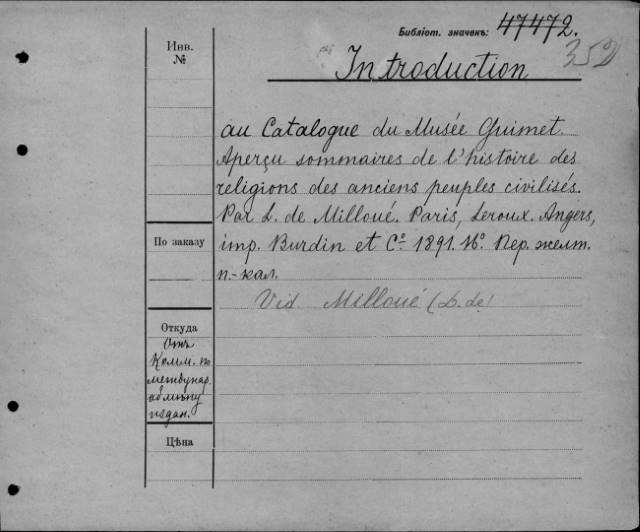 Библіот. значекъ: 47472.
352
Инв.
№
Introduction
au Catalogue du Musée Guimet.
Aperçu sommaires de l'histoire des
religions des anciens peuples civilisés.
Par L. de Milloué. Paris, Leroux. Angers,
По заказу
imp. Burdin et Cº. 1891. 16º. Пер. желт.
п.-кал.
Vid Milloué (L. de)
Откуда
Отъ
Комм. по
междунар.
обмѣну
издан.
Цѣна